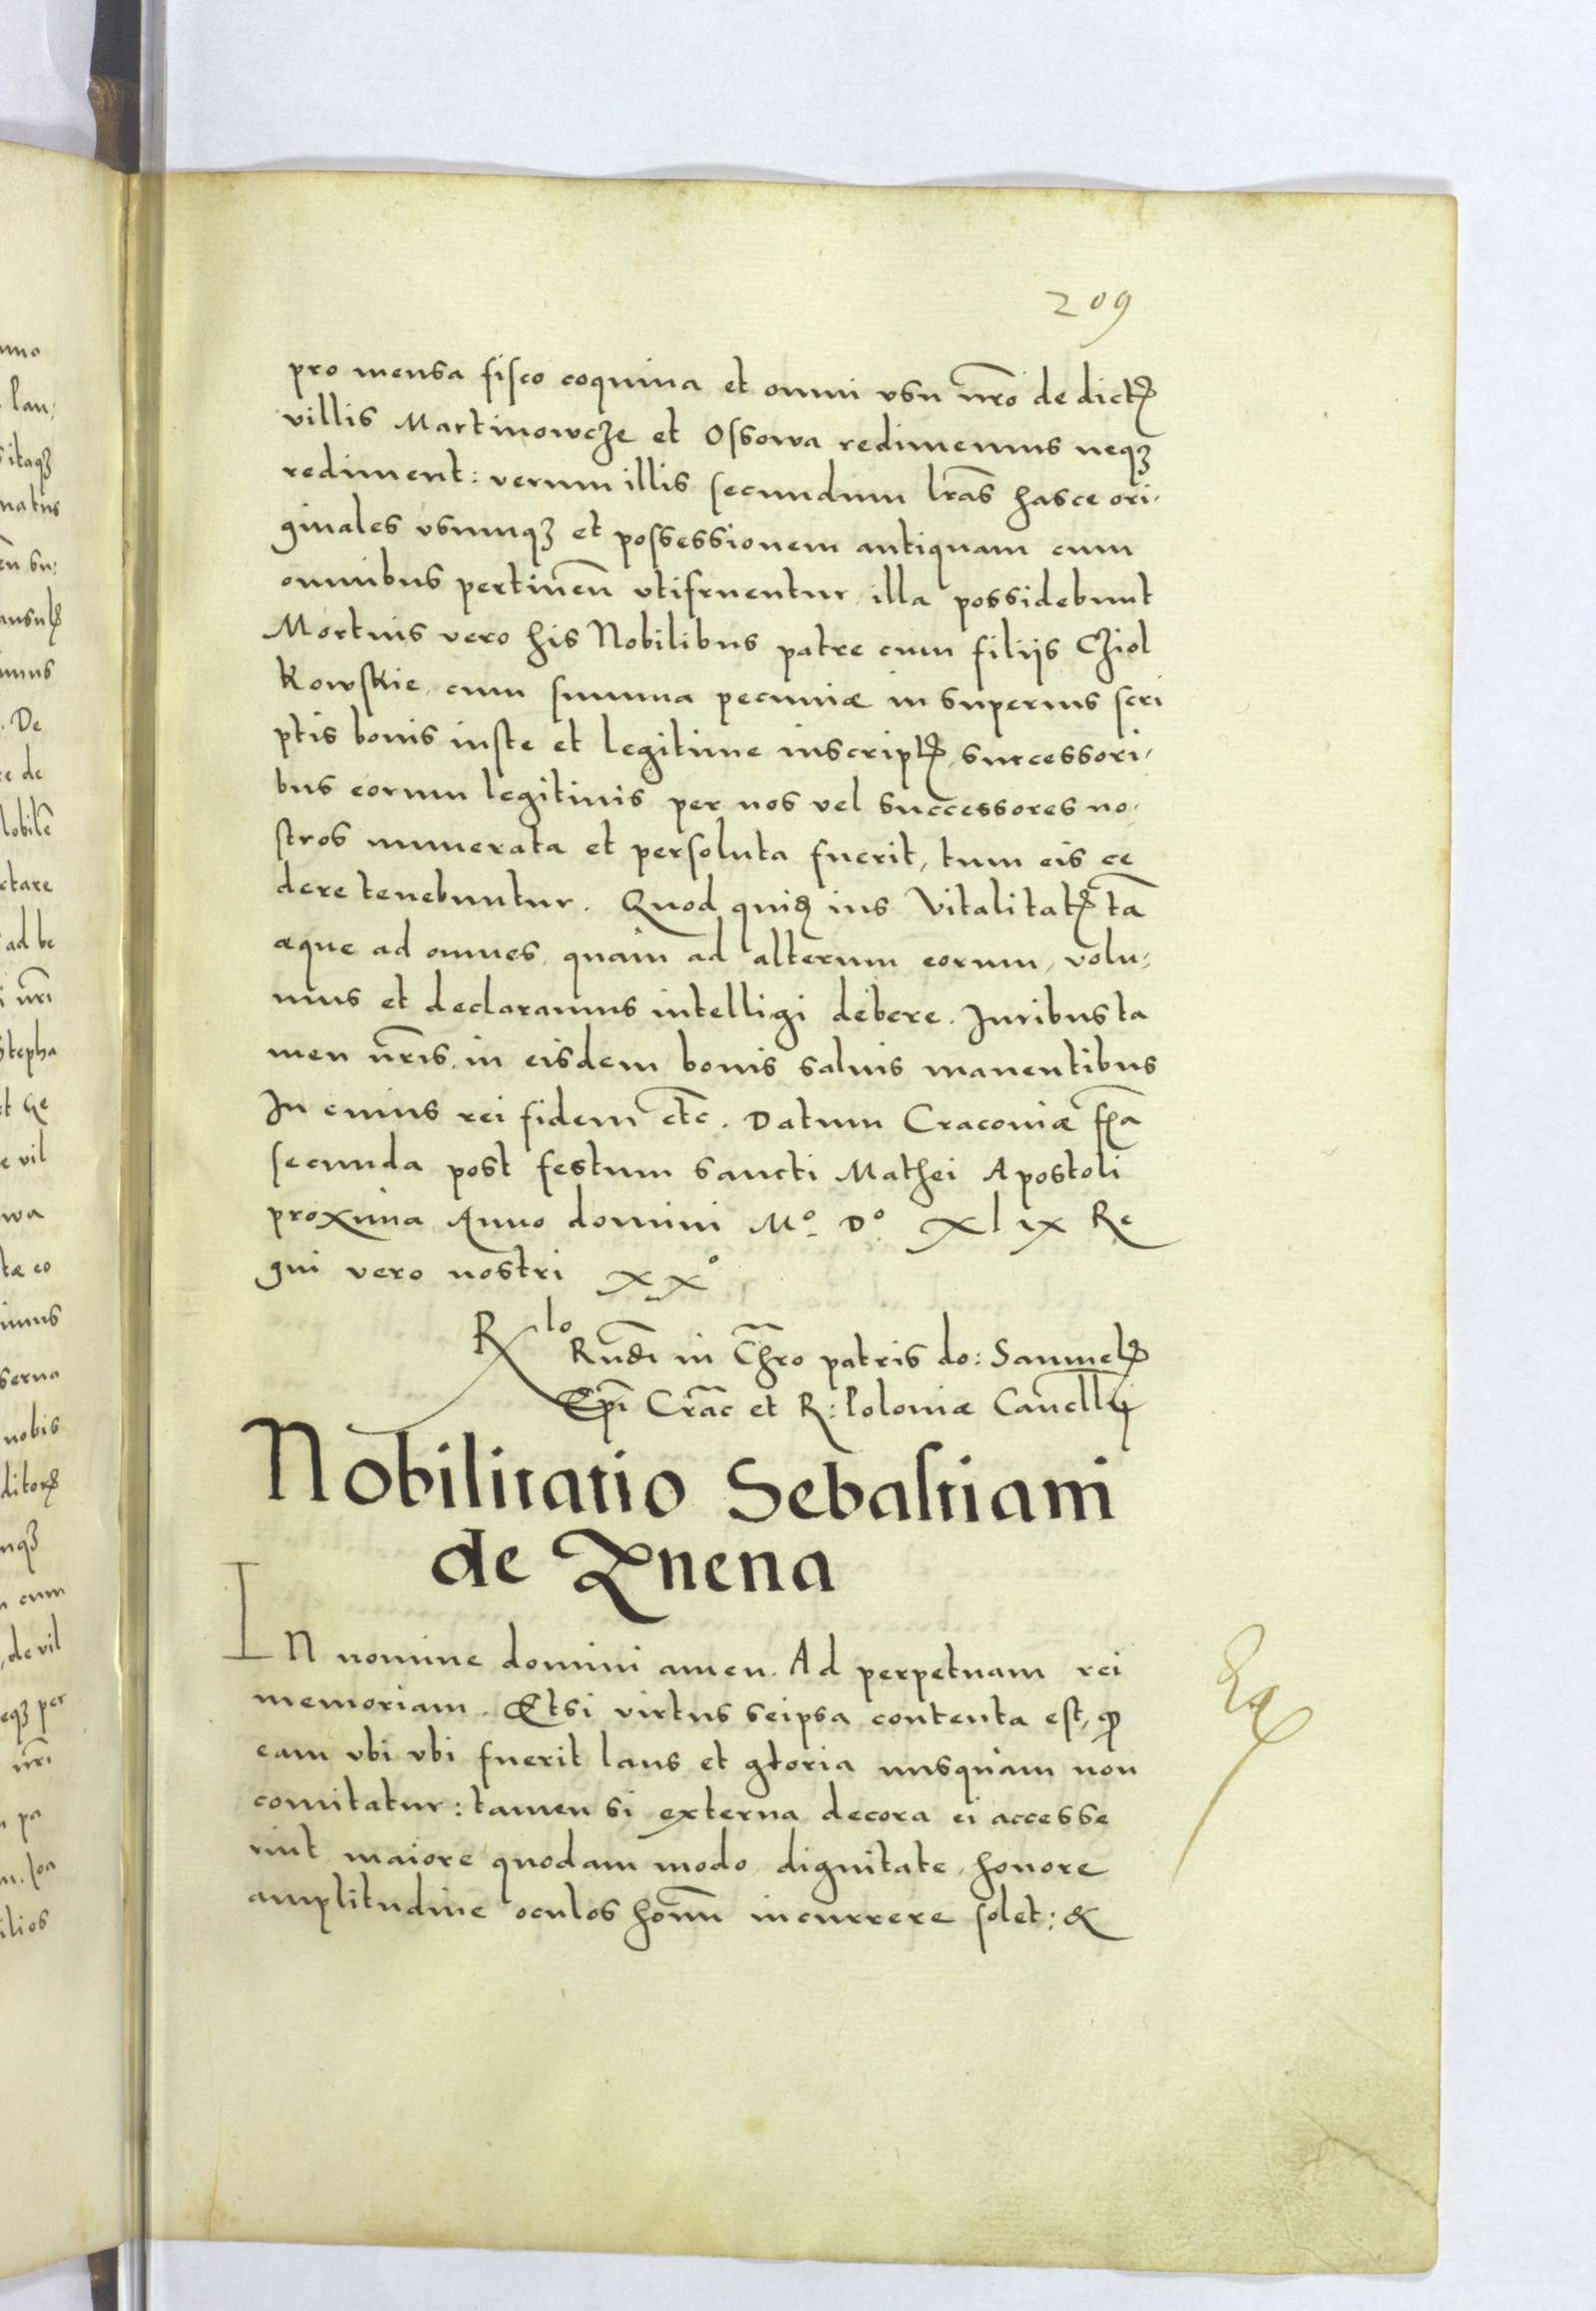 209
pro mensa fisco coquina et omni vsu nr̃o de dictꝭ
villis Martinowcze et Ossowa redimemus neqꝫ
rediment: verum illis secundum lr̃as hasce ori-
ginales vsumqꝫ et possessionem antiquam cum
omnibus pertineñ vtifruentur illa possidebunt
Mortuis vero his Nobilibus patre cum filijs Cziol
kowskie, cum summa pecuniæ in superius scri
ptis bonis iuste et legitime inscriptꝭ, successori-
bus eorum legitimis per nos vel successores no-
stros numerata et persoluta fuerit, tum eis ce
dere tenebuntur. Quod quidē ius Vitalitatꝭ tā
æque ad omnes, quam ad alterum eorum, volu-
mus et declaramus intelligi debere. Iuribus ta
men nr̃is in eisdem bonis saluis manentibus
In cuius rei fidem etc. Datum Cracoviæ fr̃a
secunda post festum sancti Mathei Apostoli
proxima Anno domini Mº Dº xlıx Re
gni vero nostri xxº
Rlo Rñdi in Chr̃o patris do: Samuelꝭ
Ep̃i Cr̃ac et R: Poloniæ Cancellrij
Nobilitatio Sebastiani
de Znena
IN nomine domini amen. Ad perpetuam rei
memoriam. Etsi virtus seipsa contenta est, ꝙ
eam vbi vbi fuerit laus et gloria nusquam non
comitatur: tamen si externa decora ei accesse
rint maiore quodam modo dignitate, honore
amplitudine oculos hom̃ incurrere solet: &